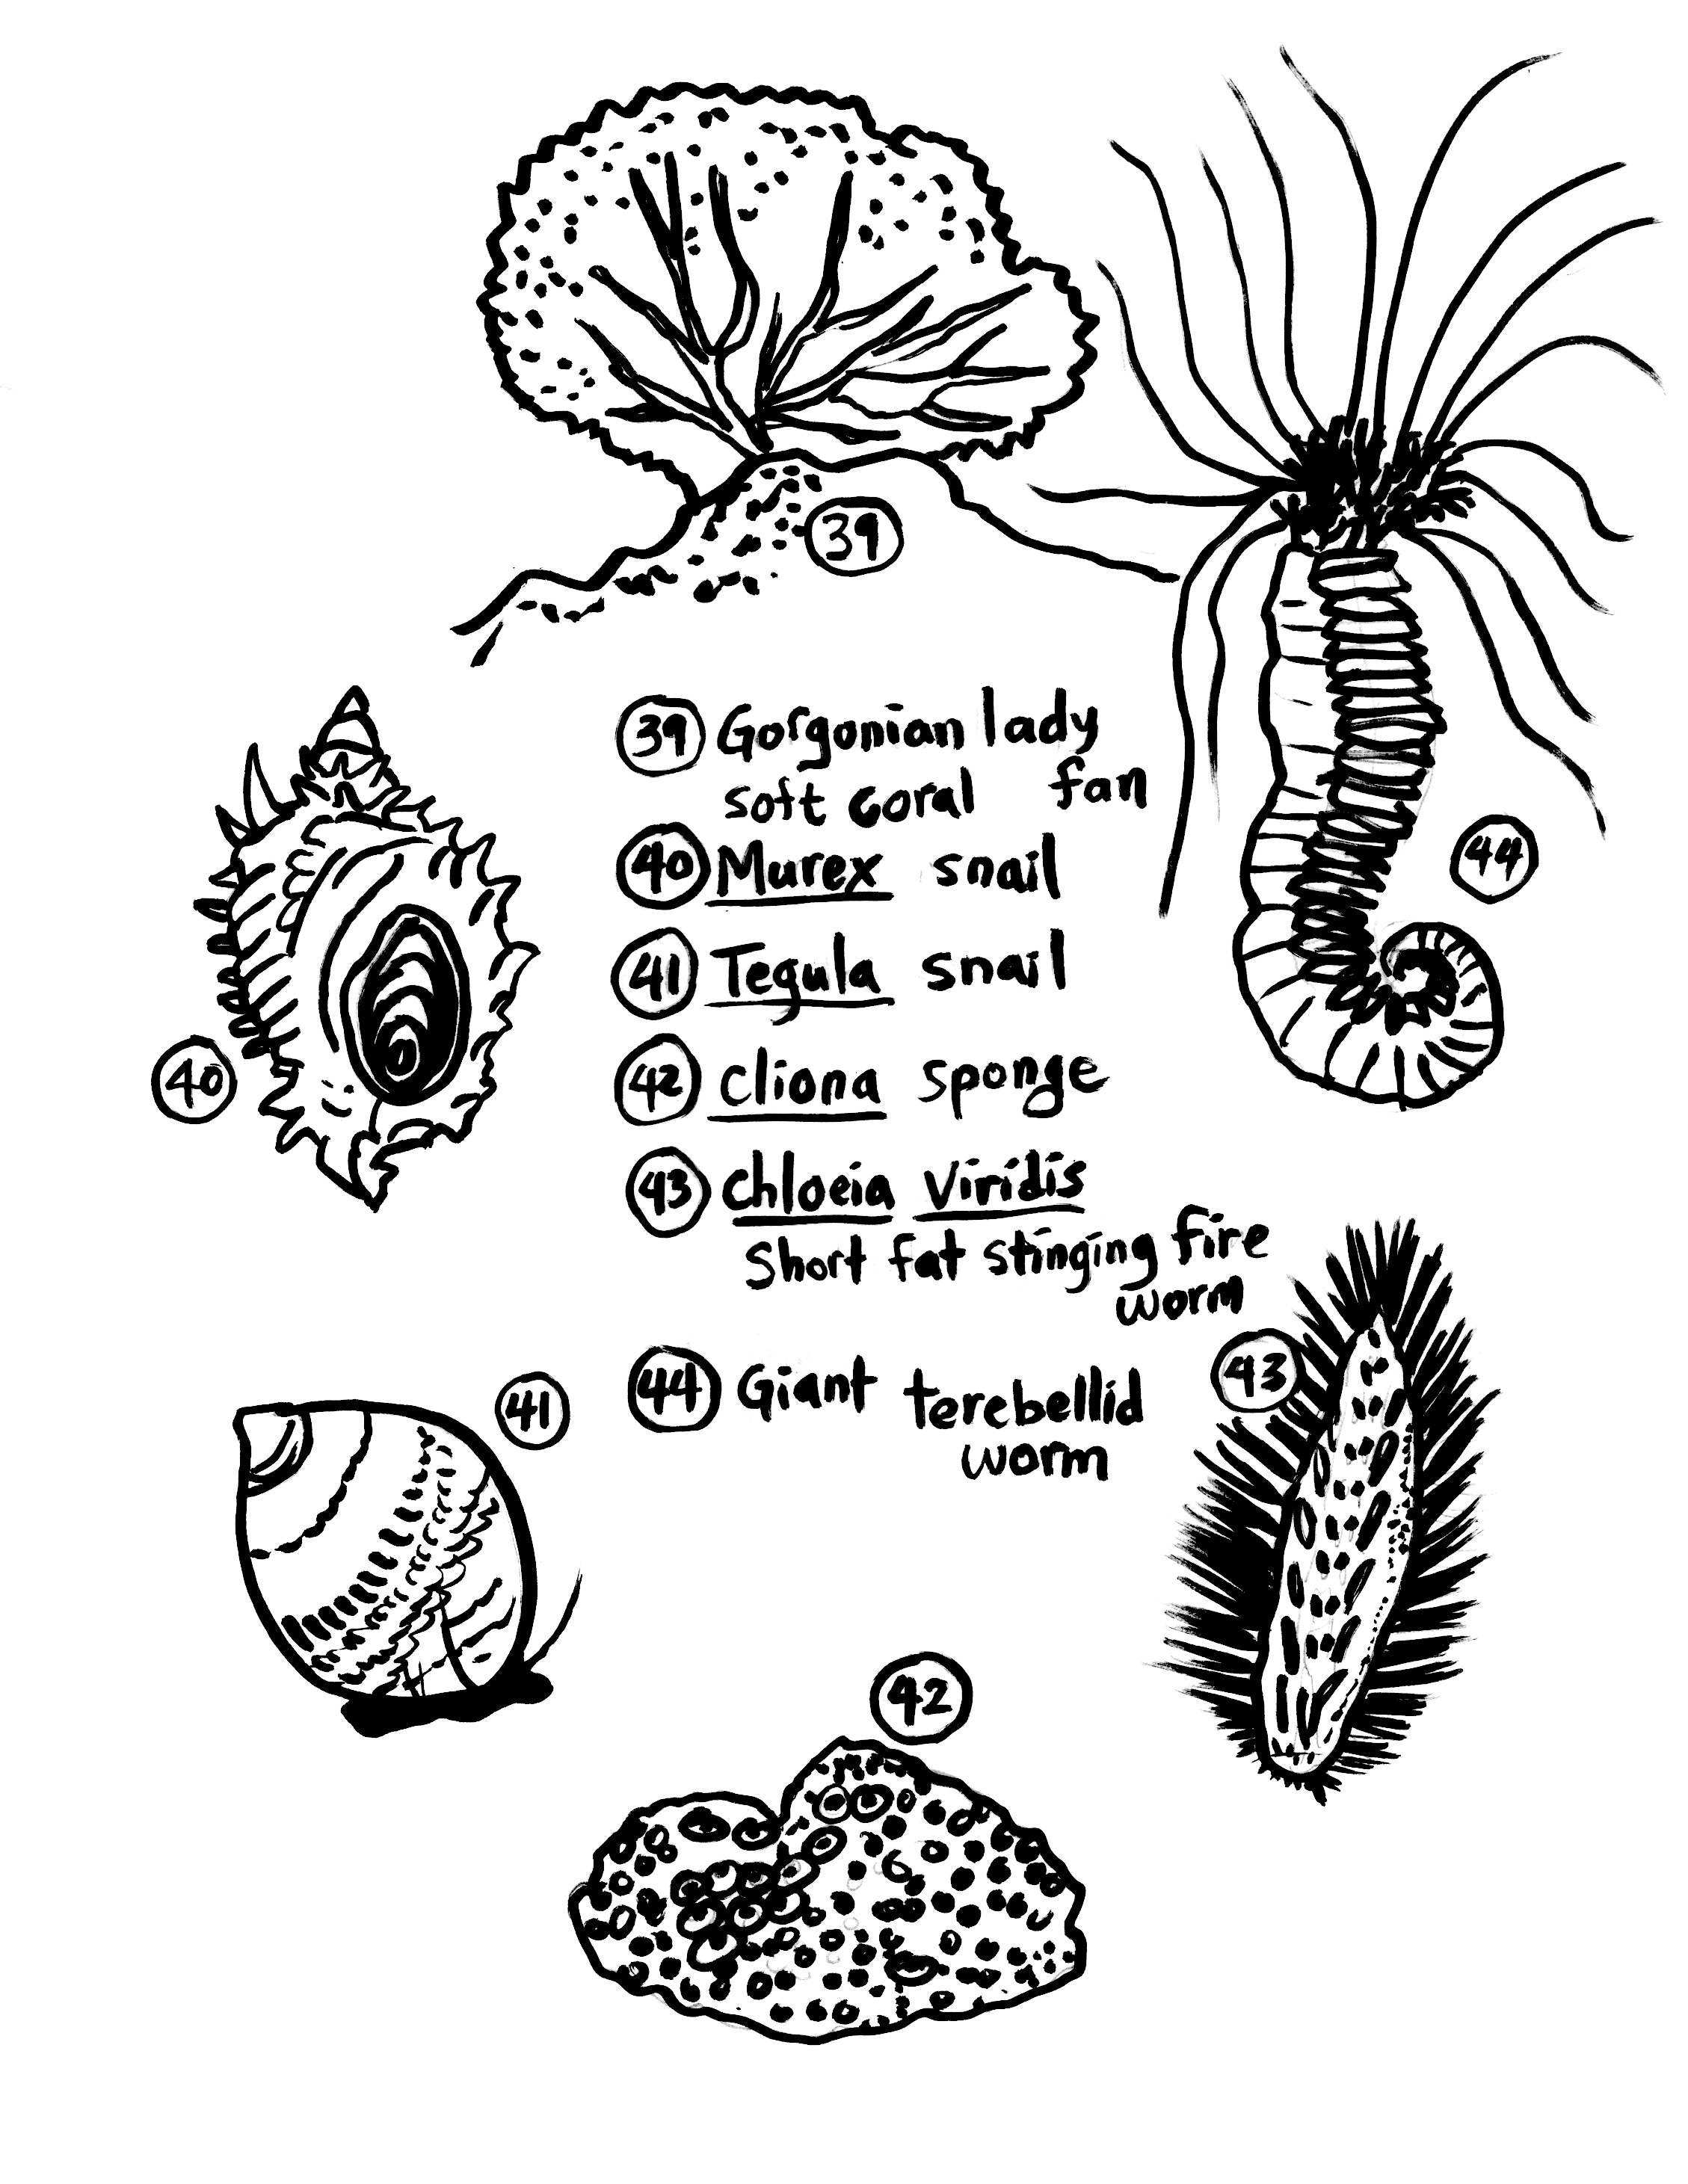 39
39 Gorgonian lady
soft coral fan
40 Murex snail
44
41 Tegula snail
40
42 Cliona sponge
43 Chloeia Viridis
Short fat stinging fire
worm
43
44 Giant terebellid
worm
41
42